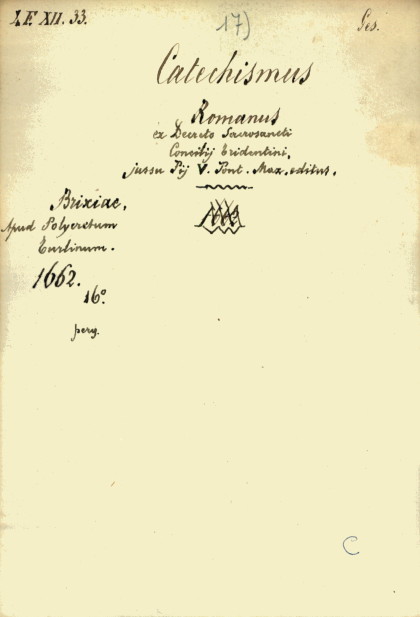 I. F. XII. 33.
17)
Ges.
Catechismus
Romanus
ex Decreto Sacrosancti
Concilij Tridentini,
jussu Pij V. Pont. Max. editus.
Brixiae,
Apud Polycretum
Turlinum.
1662.
16°.
perg.
C